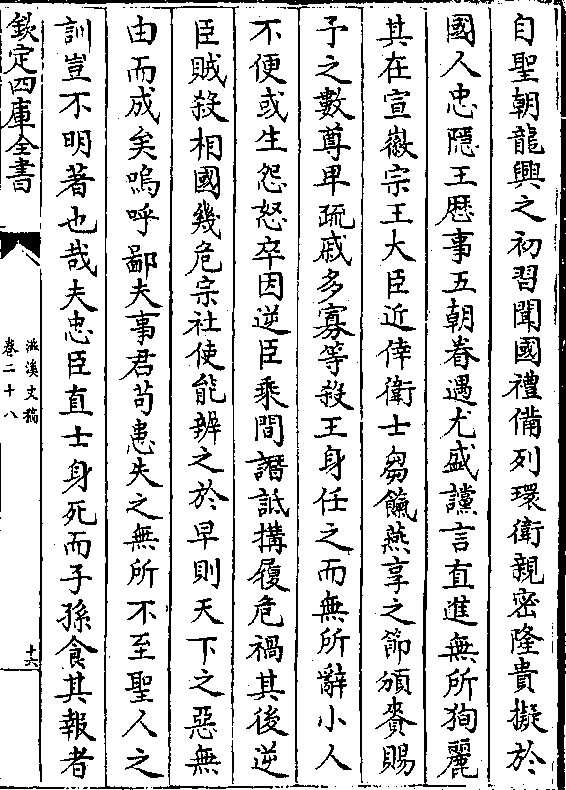 自聖朝龍興之初習聞國禮備列環衛親密隆貴擬於
國人忠隱王歴事五朝眷遇尤盛讜言直進無所狥麗
其在宣徽宗王大臣近倖衛士芻餼燕享之節頒賚賜
予之數尊卑疏戚多寡等殺王身任之而無所辭小人
不便或生怨怒卒因逆臣乘間譖詆搆履危禍其後逆
臣賊殺相國幾危宗社使能辨之於早則天下之惡無
由而成矣嗚呼鄙夫事君苟患失之無所不至聖人之
訓豈不明著也哉夫忠臣直士身死而子孫食其報者
欽定四庫全書
滋溪文稿
卷二十八
十六